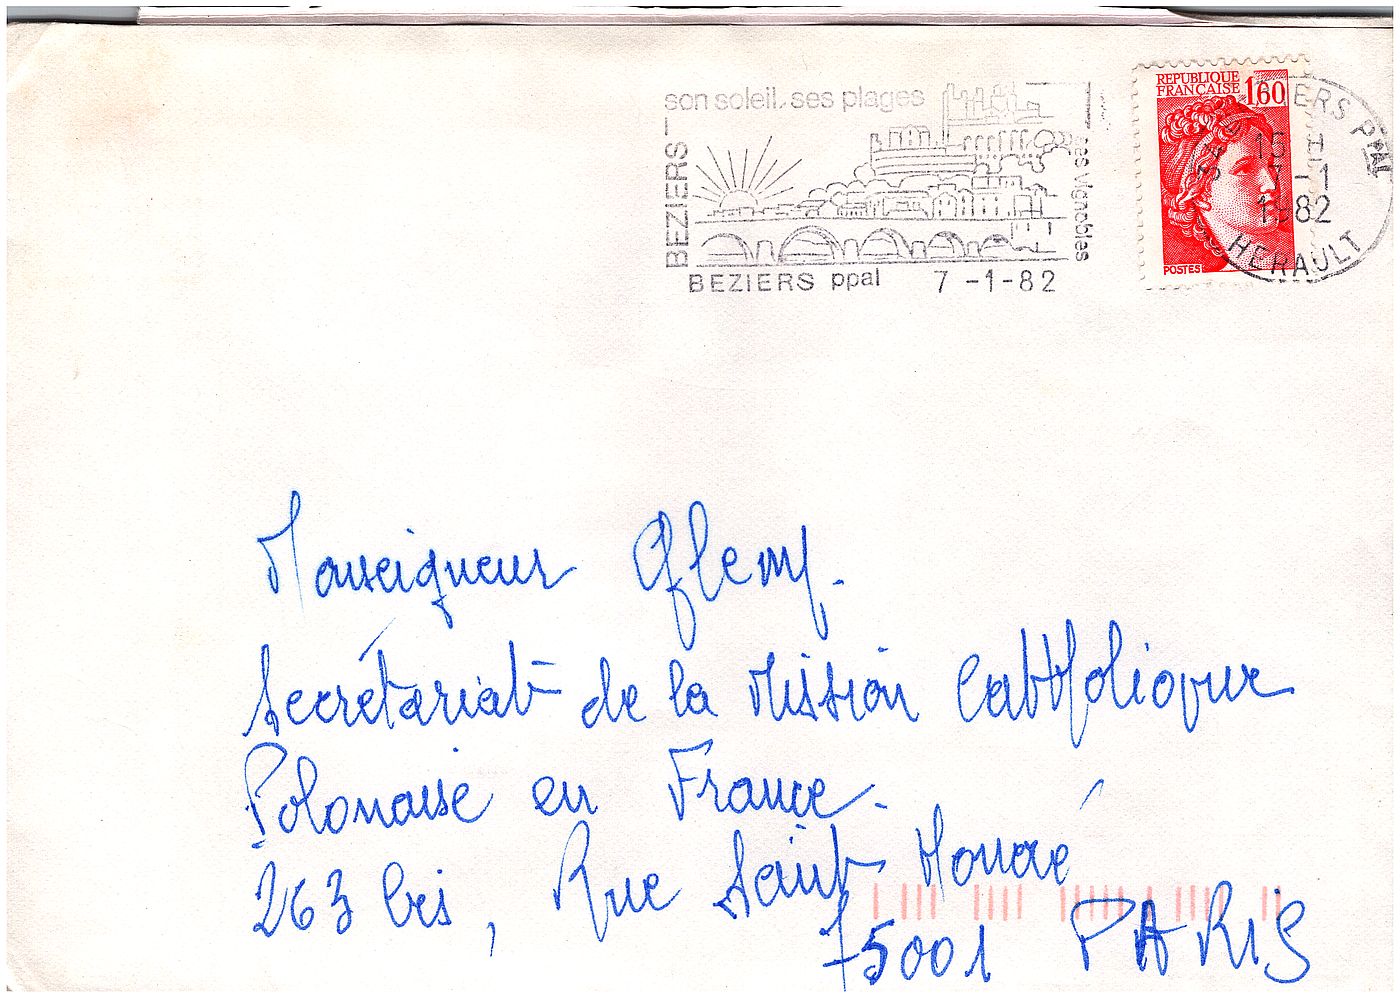 son soleil, ses plages
BEZIERS
ses vignobles
BEZIERS ppal 7-1-82
REPUBLIQUE
FRANÇAISE 1,60
POSTES
BEZIERS PPAL
15 H
7-1
1982
HERAULT
Monseigneur
Secrétariat de la Mission Catholique
Polonaise en France.
263 bis, Rue Saint Honoré
75001 PARIS